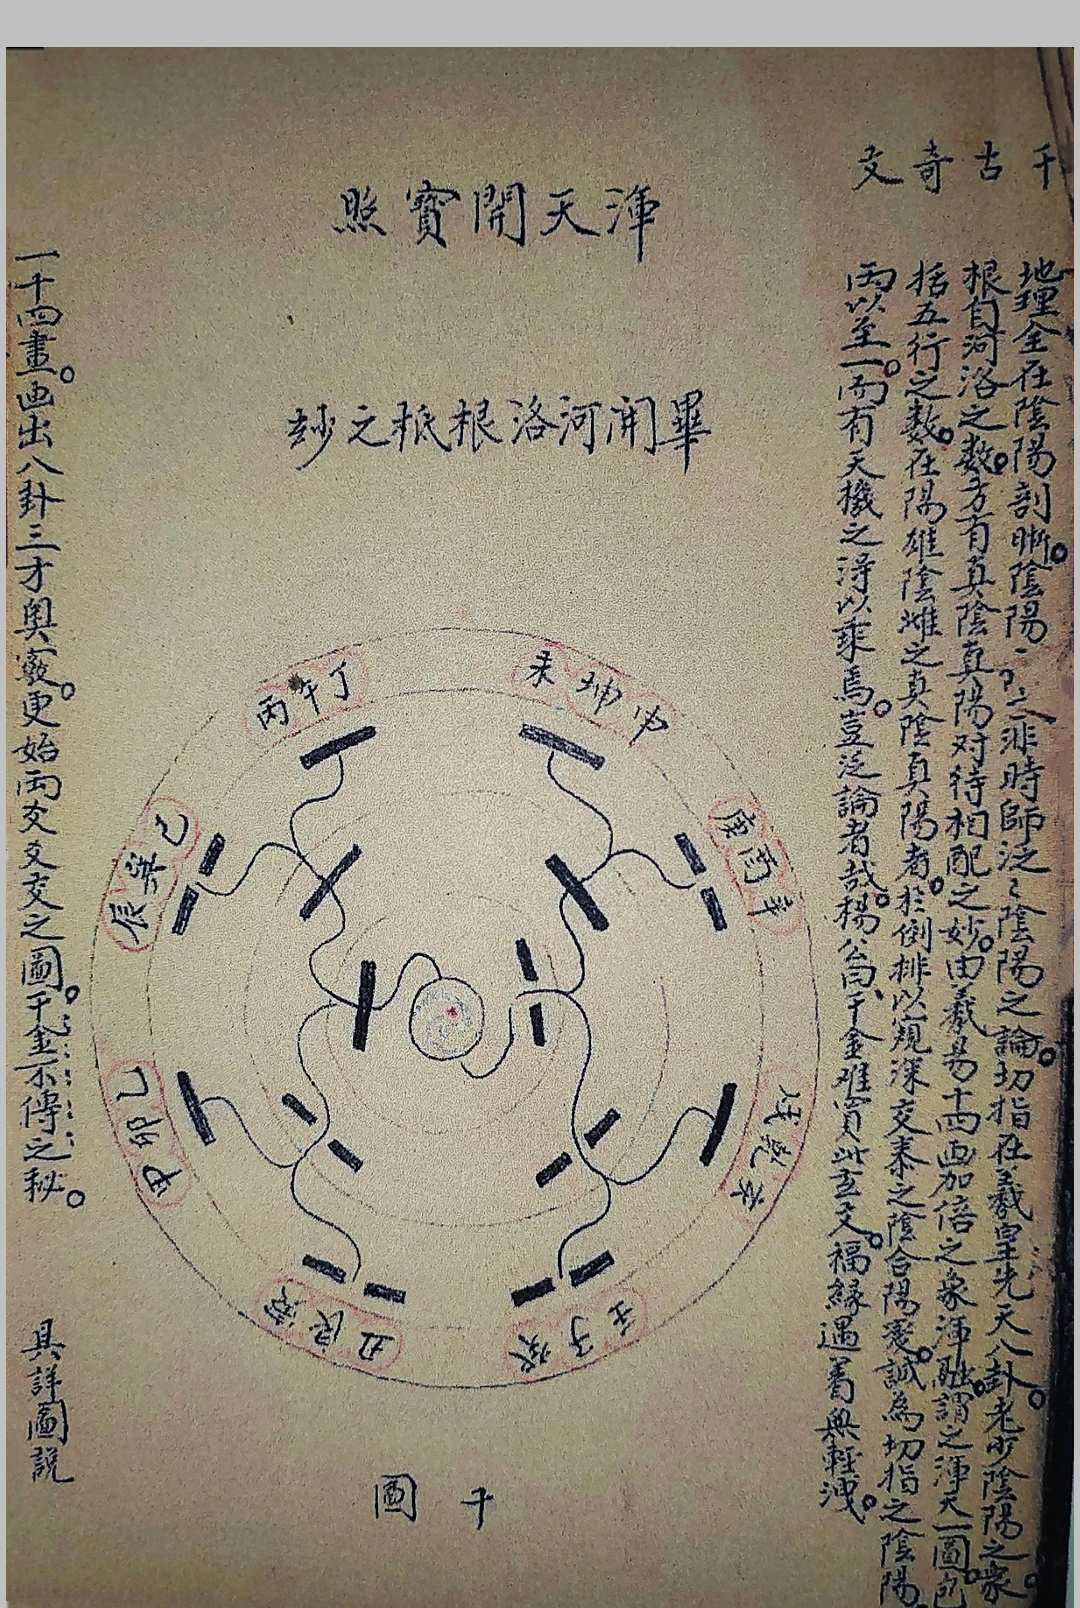 千古奇文
地理全在陰陽剖晰。陰陽二非時師泛〻陰陽之論。切指在羲皇先天八卦。老少陰陽之象。
根自河洛之数。方有真陰真陽对待相配之妙。由羲易十四画加倍之象渾融。謂之渾天一圖。包
括五行之数。在陽雄陰雌之真陰真陽者。於倒排以窺深交泰之陰合陽。誠為切指之陰陽。
兩以至一。而有天機之淂以乘焉。豈泛論者哉。楊公曰、千金难買此玄文。福緣遇着與輕洩。
渾天開寶照
畢開河洛根柢之妙
未坤申
庚酉辛
戌乾亥
壬子癸
丑艮寅
甲卯乙
辰巽巳
丙午丁
千圖
一十四畫。画出八卦三才奧竅。更始两爻爻交之圖。千金不傳之秘。
具詳圖說